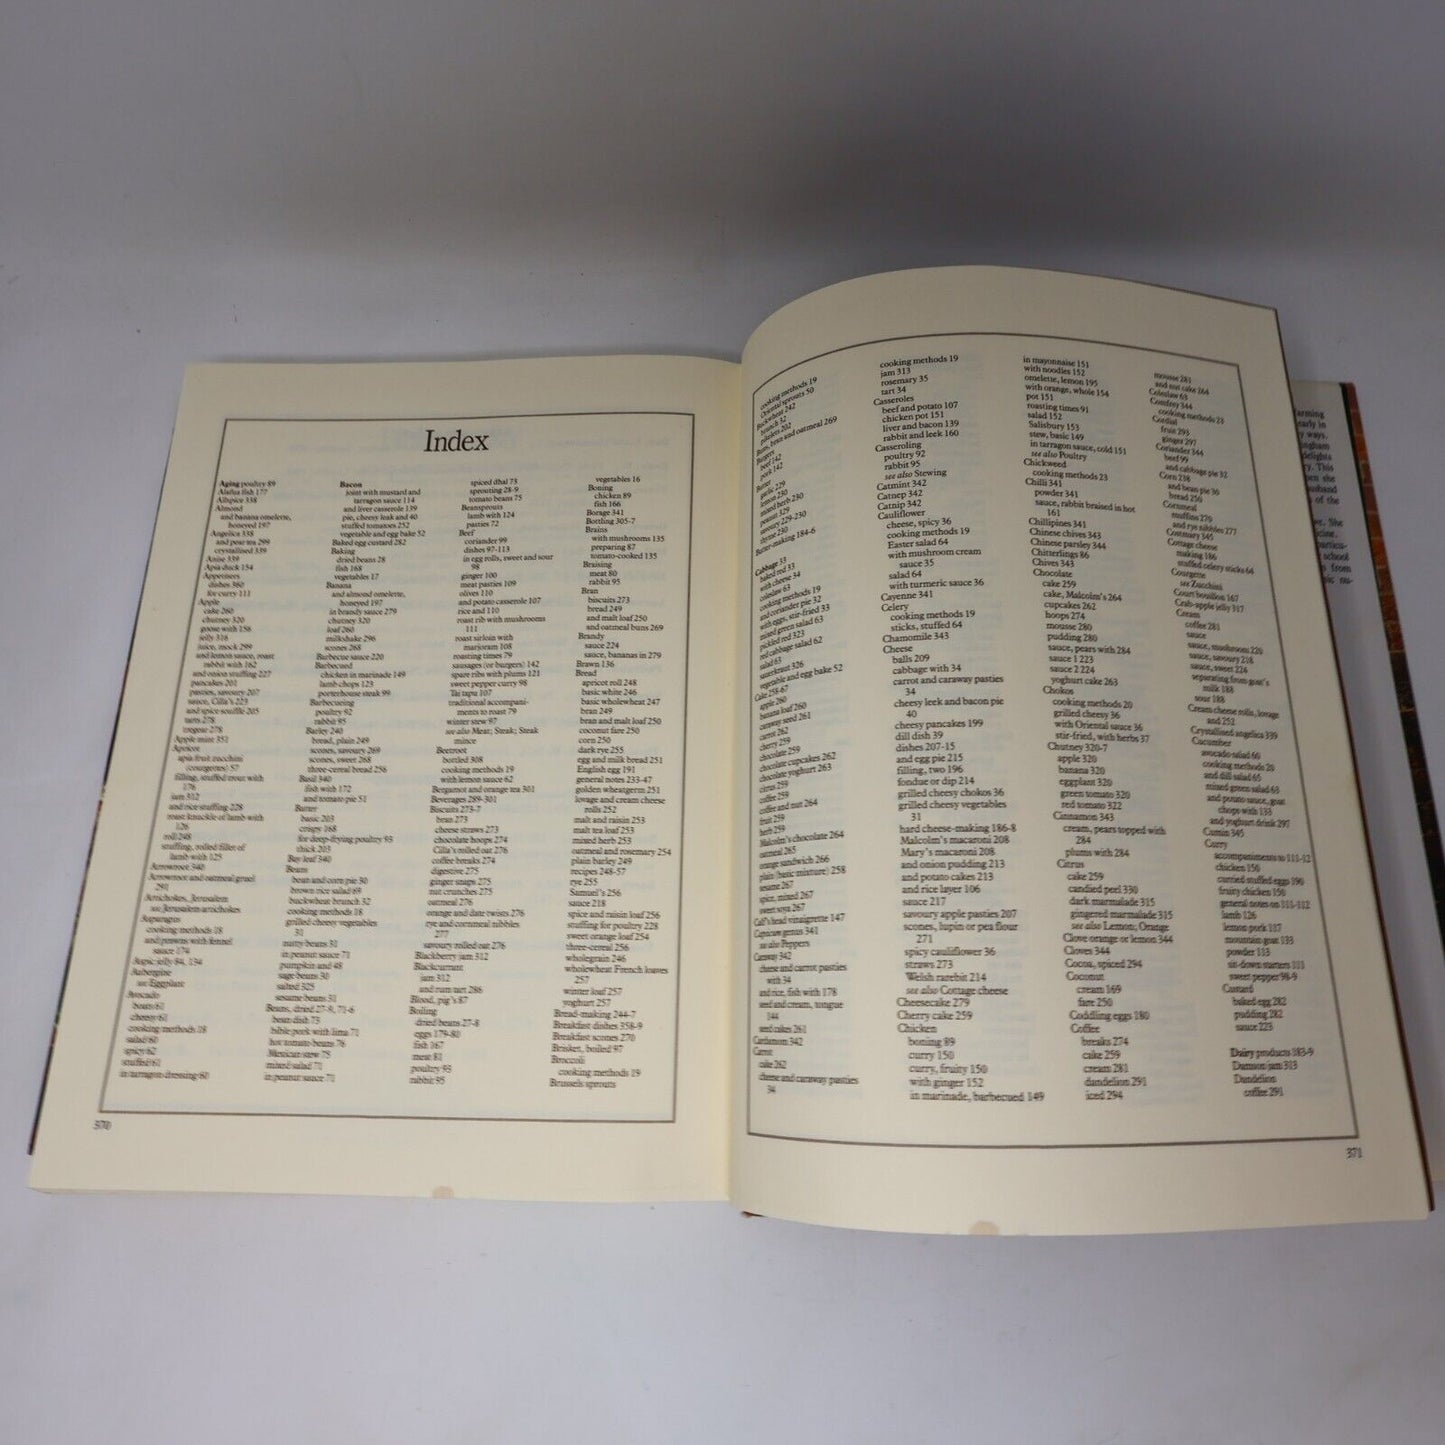 Index
Aging poultry 89
Alafua fish 177
Allspice 338
Almond
and banana omelette,
honeyed 197
Angelica 338
and pear tea 299
crystallised 339
Anise 339
Apia duck 154
Appetisers
dishes 360
for curry 111
Apple
cake 260
chutney 320
goose with 156
jelly 316
juice, mock 299
and lemon sauce, roast
rabbit with 162
and onion stuffing 227
pancakes 201
pasties, savoury 207
sauce, Cilla's 223
and spice soufflé 205
tarts 278
vregese 278
Apple mint 351
Apricot
apia fruit zucchini
(courgettes) 57
filling, stuffed trout with
176
jam 312
and rice stuffing 228
roast knuckle of lamb with
126
roll 248
stuffing, rolled fillet of
lamb with 125
Arrowroot 340
Arrowroot and oatmeal gruel
291
Artichokes, Jerusalem
see Jerusalem artichokes
Asparagus
cooking methods 18
and prawns with fennel
sauce 174
Aspic jelly 84, 134
Aubergine
see Eggplant
Avocado
boats 61
cheesy 61
cooking methods 18
salad 60
spicy 62
stuffed 61
in tarragon dressing 60
Bacon
joint with mustard and
tarragon sauce 114
and liver casserole 139
pie, cheesy leak and 40
stuffed tomatoes 252
vegetable and egg bake 52
Baked egg custard 282
Baking
dried beans 28
fish 168
vegetables 17
Banana
and almond omelette,
honeyed 197
in brandy sauce 279
chutney 320
loaf 260
milkshake 296
scones 268
Barbecue sauce 220
Barbecued
chicken in marinade 149
lamb chops 123
porterhouse steak 99
Barbecueing
poultry 92
rabbit 95
Barley 240
bread, plain 249
scones, savoury 269
scones, sweet 268
three-cereal bread 256
Basil 340
fish with 172
and tomato pie 51
Batter
basic 203
crispy 168
for deep-frying poultry 93
thick 203
Bay leaf 340
Beans
bean and corn pie 30
brown rice salad 69
buckwheat brunch 32
cooking methods 18
grilled cheesy vegetables
31
nutty beans 31
in peanut sauce 71
pumpkin and 48
sage beans 30
salted 325
sesame beans 31
Beans, dried 27-9, 71-6
bean dish 73
bible pork with lima 71
hot tomato beans 76
Mexican stew 75
mixed salad 71
in peanut sauce 71
spiced dhal 73
sprouting 28-9
tomato beans 75
Beansprouts
lamb with 124
pasties 72
Beef
coriander 99
dishes 97-113
in egg rolls, sweet and sour
98
ginger 100
meat pasties 109
olives 110
and potato casserole 107
rice and 110
roast rib with mushrooms
111
roast sirloin with
marjoram 108
roasting times 79
sausages (or burgers) 142
spare ribs with plums 121
sweet pepper curry 98
Tai tapu 107
traditional accompani-
ments to roast 79
winter stew 97
see also Meat; Steak; Steak
mince
Beetroot
bottled 308
cooking methods 19
with lemon sauce 62
Bergamot and orange tea 301
Beverages 289-301
Biscuits 273-7
bran 273
cheese straws 273
chocolate hoops 274
Cilla's rolled oat 276
coffee breaks 274
digestive 275
ginger snaps 275
nut crunches 275
oatmeal 276
orange and date twists 276
rye and cornmeal nibbles
277
savoury rolled oat 276
Blackberry jam 312
Blackcurrant
jam 312
and rum tart 286
Blood, pig's 87
Boiling
dried beans 27-8
eggs 179-80
fish 167
meat 81
poultry 93
rabbit 95
vegetables 16
Boning
chicken 89
fish 166
Borage 341
Bottling 305-7
Brains
with mushrooms 135
preparing 87
tomato-cooked 135
Braising
meat 80
rabbit 95
Bran
biscuits 273
bread 249
and malt loaf 250
and oatmeal buns 269
Brandy
sauce 224
sauce, bananas in 279
Brawn 136
Bread
apricot roll 248
basic white 246
basic wholewheat 247
bran 249
bran and malt loaf 250
coconut fare 250
corn 250
dark rye 255
egg and milk bread 251
English egg 191
general notes 233-47
golden wheatgerm 251
lovage and cream cheese
rolls 252
malt and raisin 253
malt tea loaf 253
mixed herb 253
oatmeal and rosemary 254
plain barley 249
recipes 248-57
rye 255
Samuel's 256
sauce 218
spice and raisin loaf 256
stuffing for poultry 228
sweet orange loaf 254
three-cereal 256
wholegrain 246
wholewheat French loaves
257
winter loaf 257
yoghurt 257
Bread-making 244-7
Breakfast dishes 358-9
Breakfast scones 270
Brisket, boiled 97
Broccoli
cooking methods 19
Brussels sprouts
370
cooking methods 19
Oriental sprouts 50
Buckwheat 242
brunch 32
pikelets 202
Buns, bran and oatmeal 269
Burgers
beef 142
pork 142
Butter
garlic 229
lemon 230
mixed herb 230
peanut 329
savoury 229-230
thyme 230
Butter-making 184-6
Cabbage 33
baked red 33
with cheese 34
coleslaw 63
cooking methods 19
and coriander pie 32
with eggs, stir-fried 33
mixed green salad 63
pickled red 323
red cabbage salad 62
salad 63
sauerkraut 326
vegetable and egg bake 52
Cake 258-67
apple 260
banana loaf 260
caraway seed 261
carrot 262
cherry 259
chocolate 259
chocolate cupcakes 262
chocolate yoghurt 263
citrus 259
coffee 259
coffee and nut 264
fruit 259
herb 259
Malcolm's chocolate 264
oatmeal 265
orange sandwich 266
plain (basic mixture) 258
sesame 267
spice, mixed 267
sweet soya 267
Calf's head vinaigrette 147
Capsicum genus 341
see also Peppers
Caraway 342
cheese and carrot pasties
with 34
and rice, fish with 178
seed and cream, tongue
144
seed cakes 261
Cardamom 342
Carrot
cake 262
cheese and caraway pasties
34
cooking methods 19
jam 313
rosemary 35
tart 34
Casseroles
beef and potato 107
chicken pot 151
liver and bacon 139
rabbit and leek 160
Casseroling
poultry 92
rabbit 95
see also Stewing
Catmint 342
Catnep 342
Catnip 342
Cauliflower
cheese, spicy 36
cooking methods 19
Easter salad 64
with mushroom cream
sauce 35
salad 64
with turmeric sauce 36
Cayenne 341
Celery
cooking methods 19
sticks, stuffed 64
Chamomile 343
Cheese
balls 209
cabbage with 34
carrot and caraway pasties
34
cheesy leek and bacon pie
40
cheesy pancakes 199
dill dish 39
dishes 207-15
and egg pie 215
filling, two 196
fondue or dip 214
grilled cheesy chokos 36
grilled cheesy vegetables
31
hard cheese-making 186-8
Malcolm's macaroni 208
Mary's macaroni 208
and onion pudding 213
and potato cakes 213
and rice layer 106
sauce 217
savoury apple pasties 207
scones, lupin or pea flour
271
spicy cauliflower 36
straws 273
Welsh rarebit 214
see also Cottage cheese
Cheesecake 279
Cherry cake 259
Chicken
boning 89
curry 150
curry, fruity 150
with ginger 152
in marinade, barbecued 149
in mayonnaise 151
with noodles 152
omelette, lemon 195
with orange, whole 154
pot 151
roasting times 91
salad 152
Salisbury 153
stew, basic 149
in tarragon sauce, cold 151
see also Poultry
Chickweed
cooking methods 23
Chilli 341
powder 341
sauce, rabbit braised in hot
161
Chillipines 341
Chinese chives 343
Chinese parsley 344
Chitterlings 86
Chives 343
Chocolate
cake 259
cake, Malcolm's 264
cupcakes 262
hoops 274
mousse 280
pudding 280
sauce, pears with 284
sauce 1 223
sauce 2 224
yoghurt cake 263
Chokos
cooking methods 20
grilled cheesy 36
with Oriental sauce 36
stir-fried, with herbs 37
Chutney 320-7
apple 320
banana 320
eggplant 320
green tomato 320
red tomato 322
Cinnamon 343
cream, pears topped with
284
plums with 284
Citrus
cake 259
candied peel 330
dark marmalade 315
gingered marmalade 315
see also Lemon; Orange
Clove orange or lemon 344
Cloves 344
Cocoa, spiced 294
Coconut
cream 169
fare 250
Coddling eggs 180
Coffee
breaks 274
cake 259
cream 281
dandelion 291
iced 294
mousse 281
and nut cake 264
Coleslaw 63
Comfrey 344
cooking methods 23
Cordial
fruit 293
ginger 297
Coriander 344
beef 99
and cabbage pie 32
Corn 238
and bean pie 30
bread 250
Cornmeal
muffins 270
and rye nibbles 277
Costmary 345
Cottage cheese
making 186
stuffed celery sticks 64
Courgette
see Zucchini
Court bouillon 167
Crab-apple jelly 317
Cream
coffee 281
sauce
sauce, mushroom 220
sauce, savoury 218
sauce, sweet 226
separating from goat's
milk 188
sour 188
Cream cheese rolls, lovage
and 251
Crystallised angelica 339
Cucumber
avocado salad 66
cooking methods 20
and dill salad 65
mixed green salad 63
and potato sauce, goat
chops with 133
and yoghurt drink 297
Cumin 345
Curry
accompaniments to 111-12
chicken 150
curried stuffed eggs 190
fruity chicken 150
general notes on 111-112
lamb 126
lemon pork 117
mountain goat 133
powder 113
sit-down starters 111
sweet pepper 98-9
Custard
baked egg 282
pudding 282
sauce 223
Dairy products 183-9
Damson jam 313
Dandelion
coffee 291
371